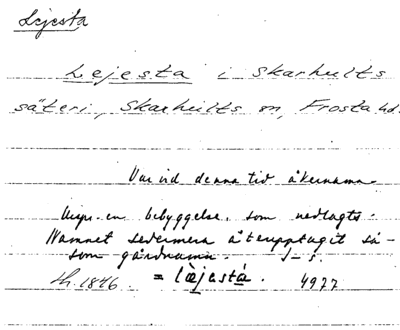 Lejesta
Lejesta i Skarhults
säteri, Skarhults sn, Frosta hd.
Var vid denna tid åkernamn.
Urspr. en bebyggelse, som nedlagts.
Namnet sedermera återupptagit så-
som gårdnamn.
th. 1846 = læjestá. 4977